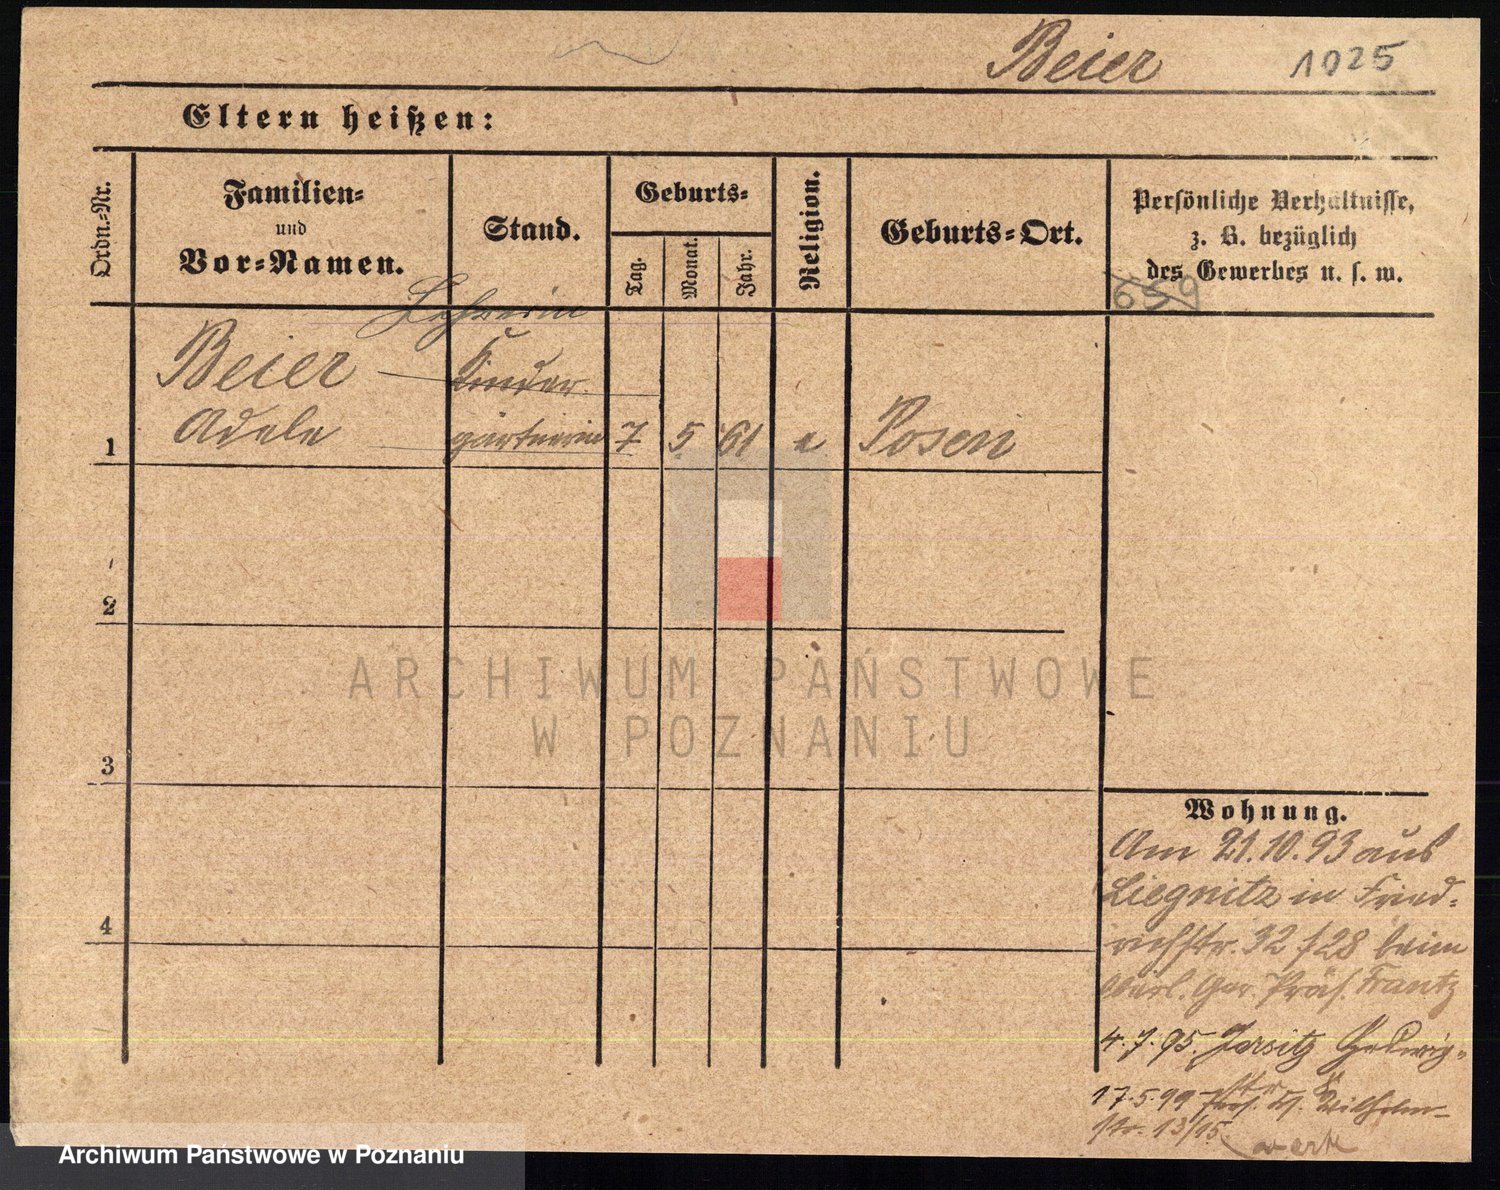 Beier 1025
Eltern heißen:
Ordn.-Nr.
Familien-
und
Vor-Namen.
Stand.
Geburts-
Tag.
Monat.
Jahr.
Religion.
Geburts-Ort.
Persönliche Verhältnisse,
z. B. bezüglich
des Gewerbes u. s. w.
659
Lehrerin
Beier Kinder
1 Adele gärtnerin 7 5 61 e Posen
2
3
4
Wohnung.
Am 21.10.93 aus
Liegnitz in Fried-
richstr. 32/28 beim
Präs. Frantz
4.7.95. Jersitz Hedwig-
str
17.5.99 Wilhelm-
str. 13/15.
ARCHIWUM PAŃSTWOWE
W POZNANIU
Archiwum Państwowe w Poznaniu